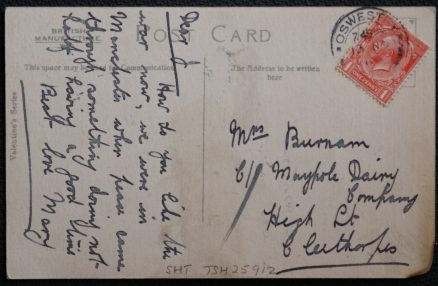 BRITISH
MANUFACTURE
POST CARD
This space may be used for Communication
The Address to be written
here
Valentine's Series
OSWEST
7.45
ONE PENNY
1
Dear J How do you like the
war now, we were in
Manchester when peace came
through, something doing not
half having a good time
Best love Mary
Mrs Burnam
C/o Maypole Dairy
Company
High St
Cleethorpes
SHT TSH25912